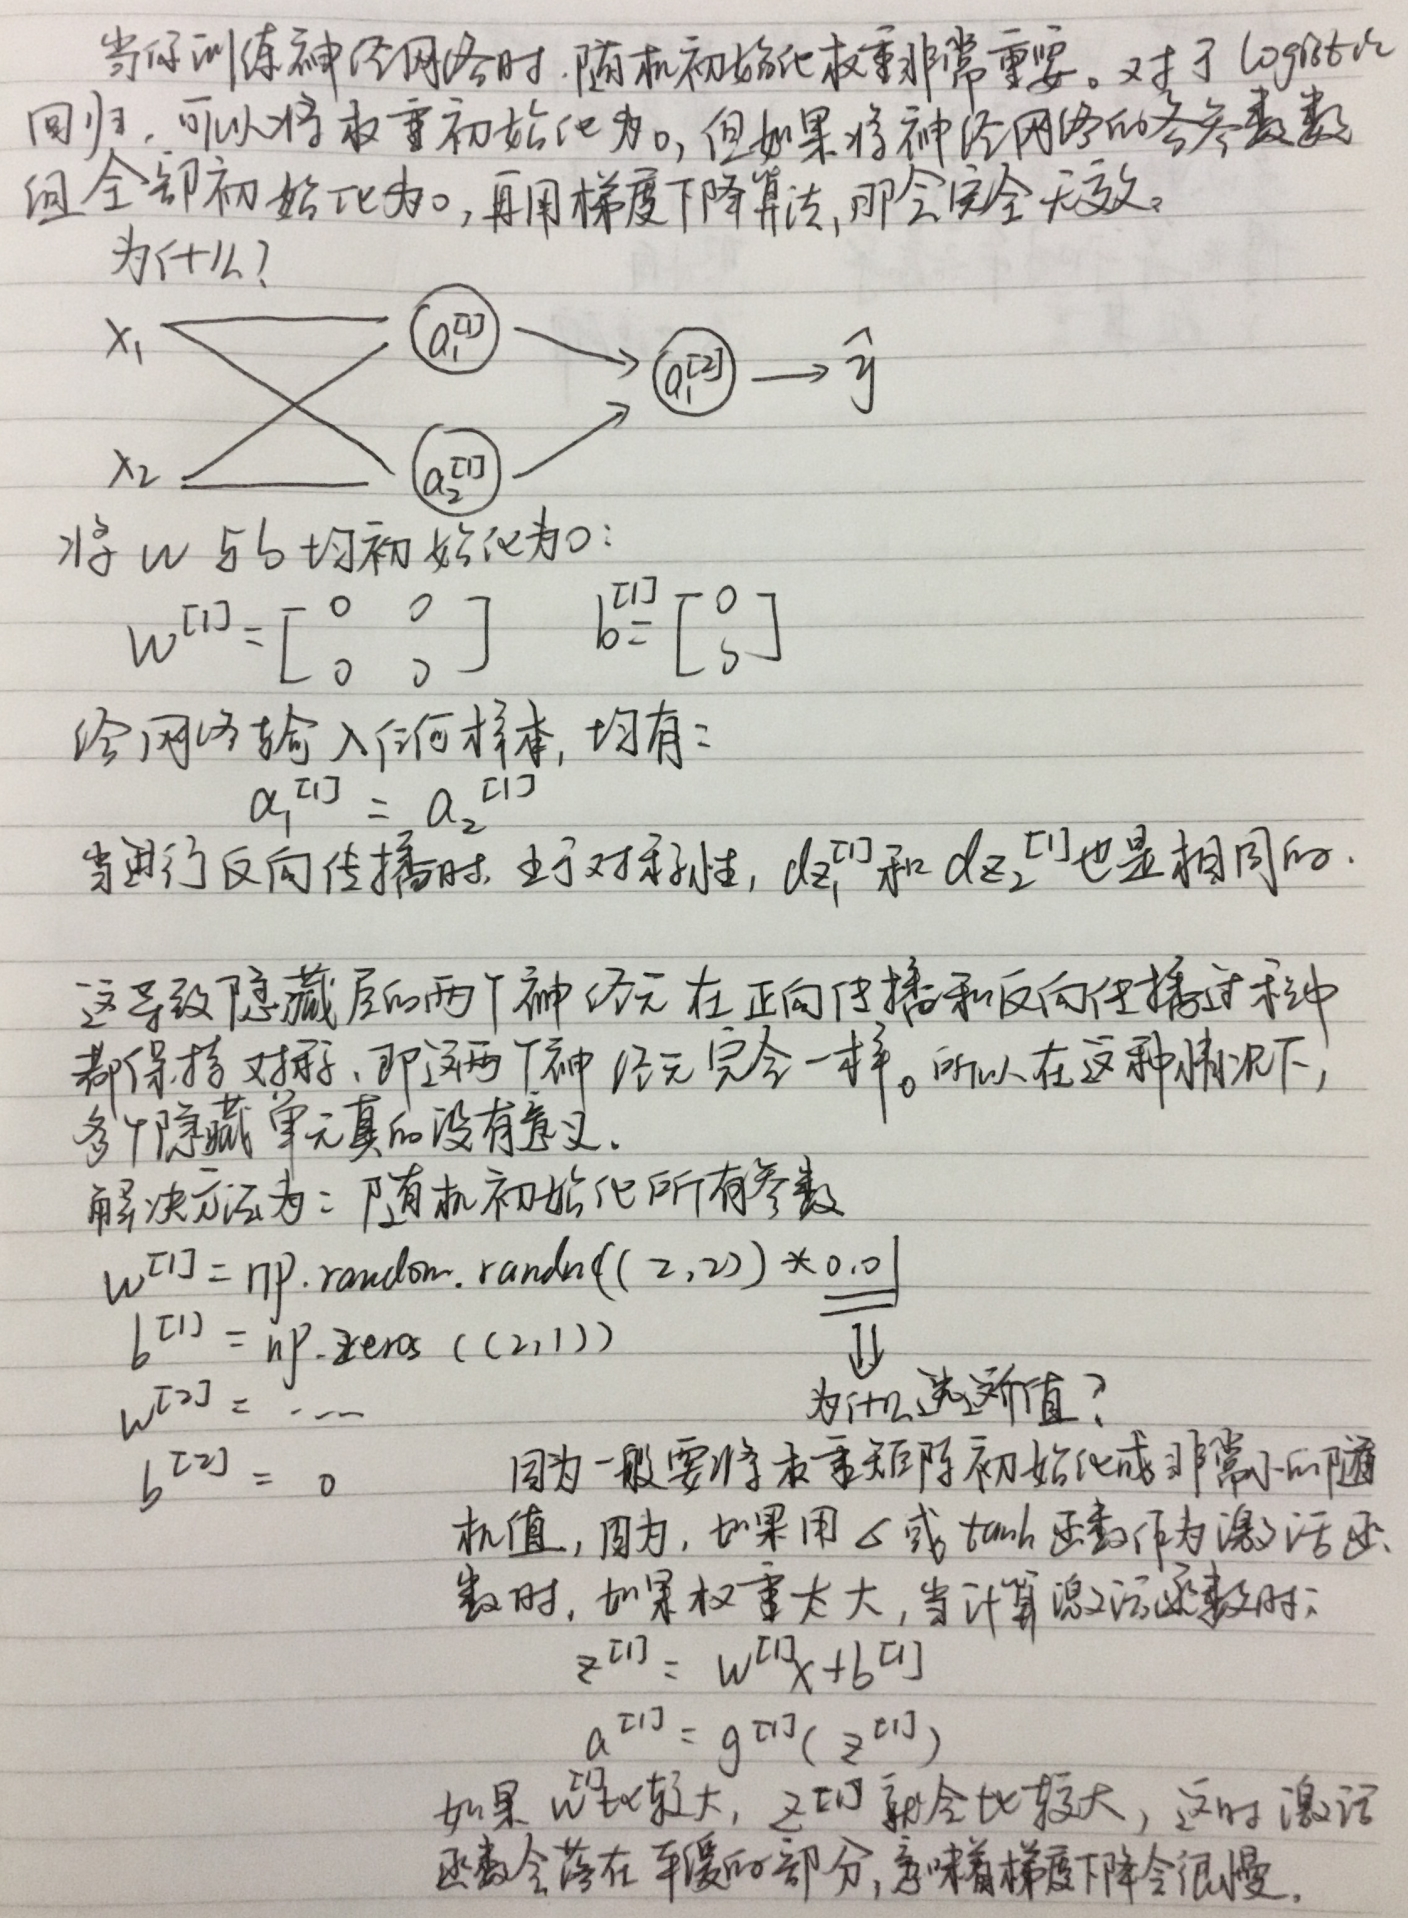 当你训练神经网络时,随机初始化权重非常重要。对于logistic
回归,可以将权重初始化为0,但如果将神经网络的各参数数
组全部初始化为0,再用梯度下降算法,那会完全无效。
为什么?
x₁ a₁^[1] a₁^[2] → ŷ
x₂ a₂^[1]
将w与b均初始化为0:
w^[1] = [0 0 b^[1] = [0
0 0] 0]
给网络输入任何样本,均有:
a₁^[1] = a₂^[1]
当进行反向传播时,由于对称性,dz₁^[1]和dz₂^[1]也是相同的.
这导致隐藏层的两个神经元在正向传播和反向传播过程中
都保持对称,即这两个神经元完全一样。所以在这种情况下,
多个隐藏单元真的没有意义.
解决方法为:随机初始化所有参数
w^[1] = np.random.randn((2,2)) * 0.01
b^[1] = np.zeros((2,1))
⇓
w^[2] = ....
为什么选这个值?
b^[2] = 0
因为一般要将权重矩阵初始化成非常小的随
机值,因为,如果用σ或tanh函数作为激活函
数时,如果权重太大,当计算激活函数时:
z^[1] = w^[1]x+b^[1]
a^[1] = g^[1](z^[1])
如果w^[1]比较大,z^[1]就会比较大,这时激活
函数会落在平缓的部分,意味着梯度下降会很慢.